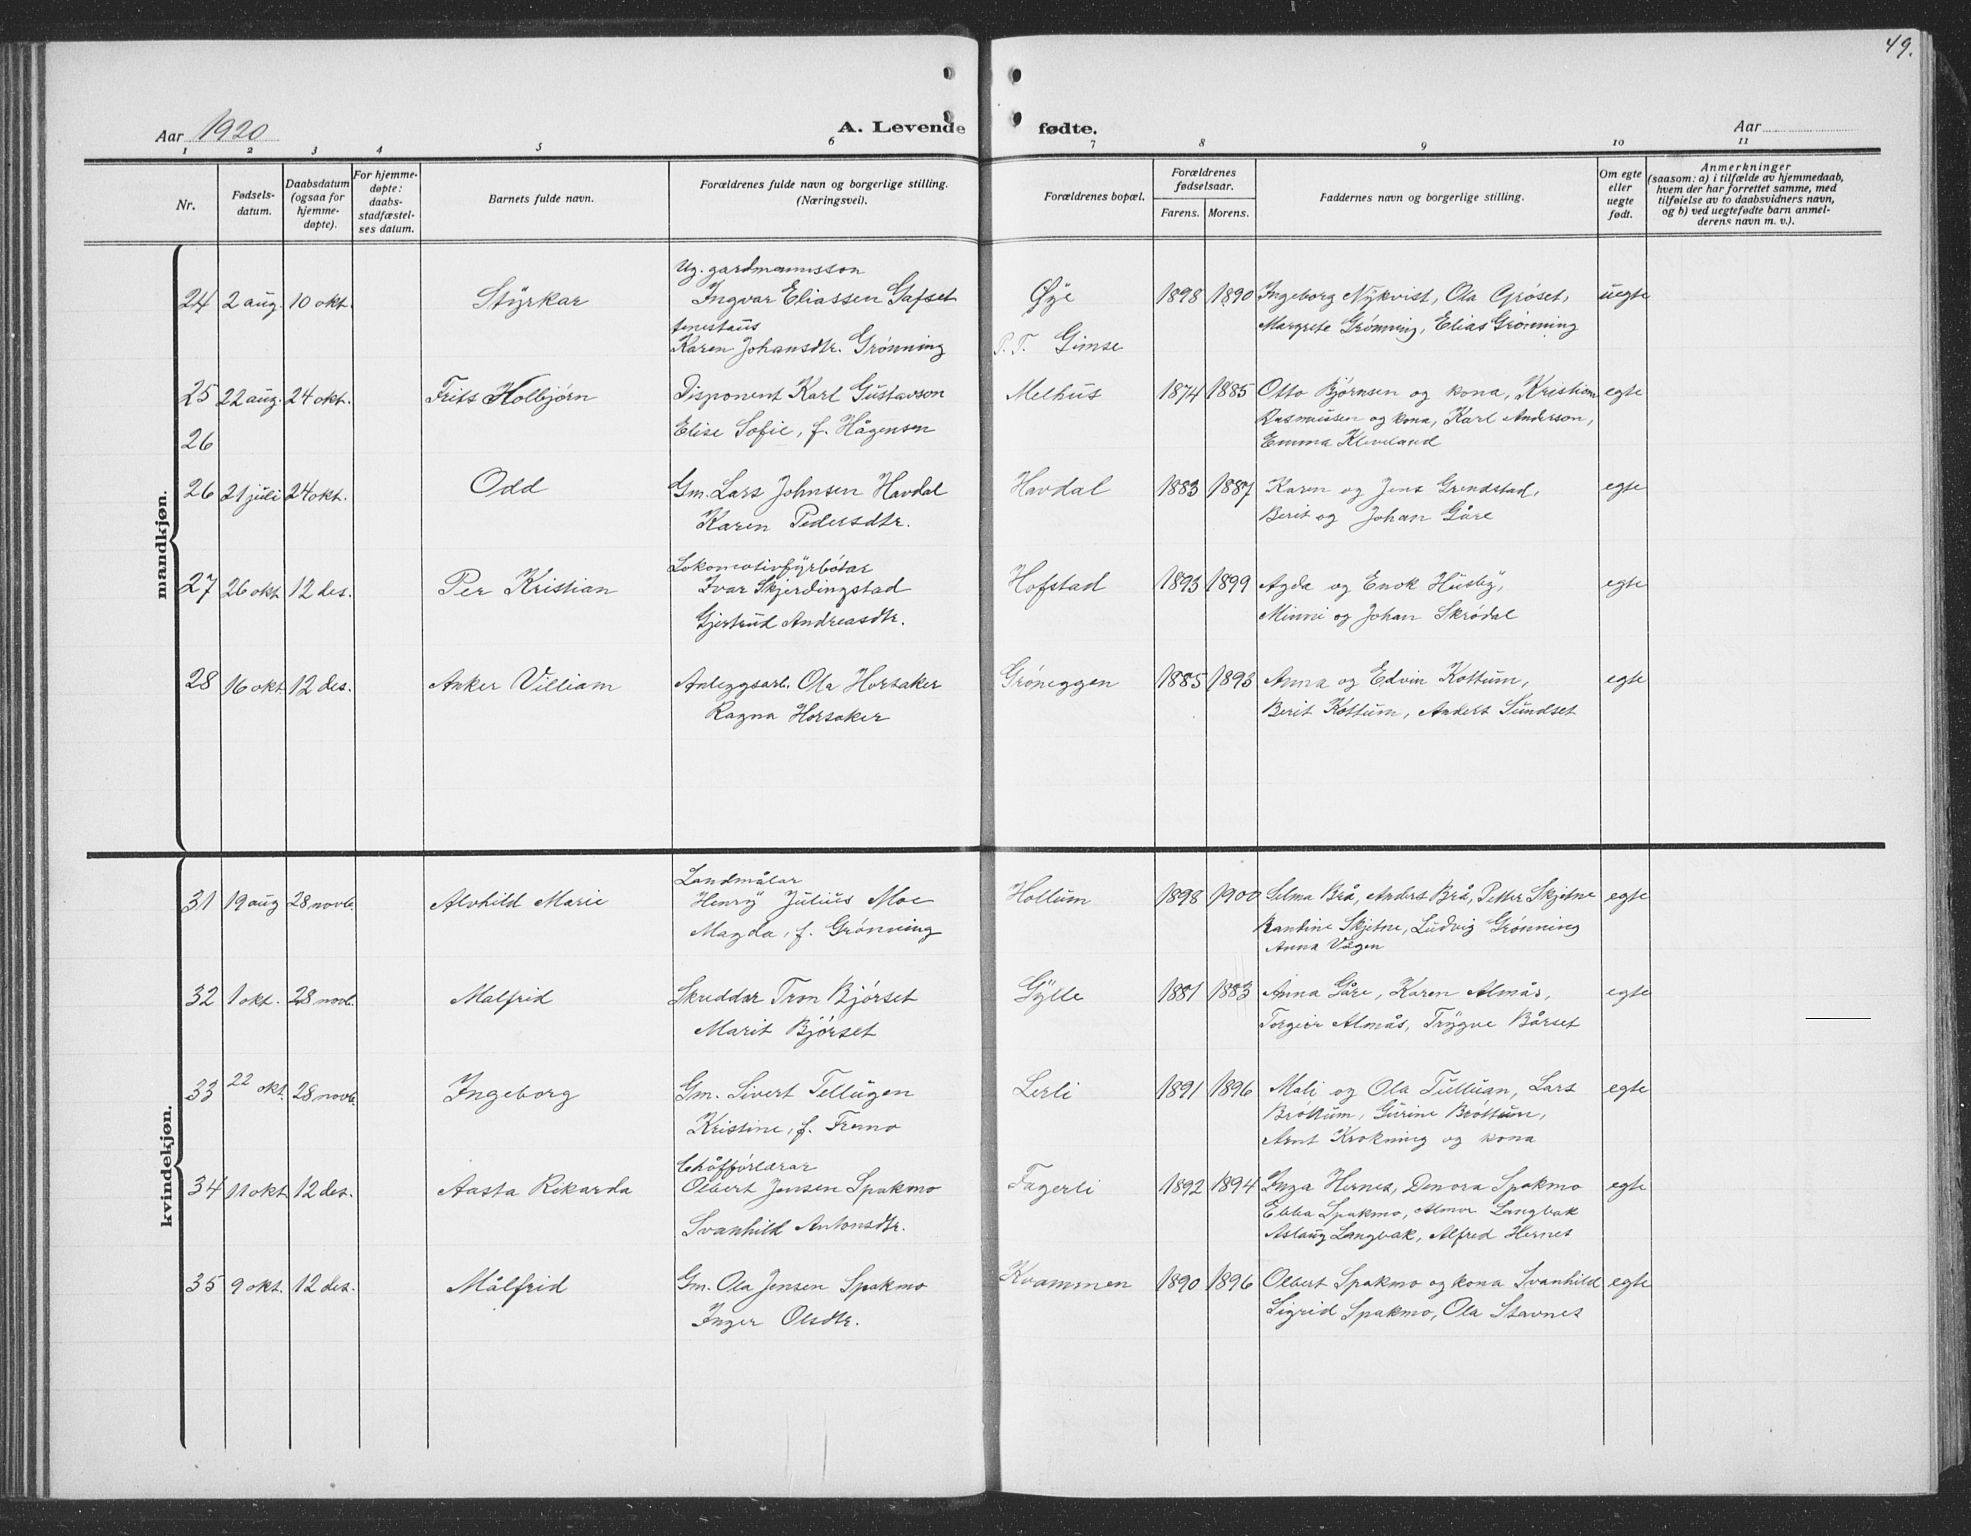 49.
Aar 1920
A. Levende fødte.
Aar
1 2 3 4 5 6 7 8 9 10 11
Nr.
Fødsels-
datum.
Daabsdatum
(ogsaa for
hjemme-
døpte).
For hjemme-
døpte:
daabs-
stadfæstel-
ses datum.
Barnets fulde navn.
Forældrenes fulde navn og borgerlige stilling.
(Næringsvei).
Forældrenes bopæl.
Forældrenes
fødselsaar.
Farens. Morens.
Faddernes navn og borgerlige stilling.
Om egte
eller
uegte
født.
Anmerkninger
(saasom: a) i tilfælde av hjemmedaab,
hvem der har forrettet samme, med
tilføielse av to daabsvidners navn,
og b) ved uegtefødte barn anmel-
derens navn m. v.).
mandkjøn.
Ug. gardmannsson
24 2 aug. 10 okt. Styrkar Ingvar Eliassen Gafset Øye 1898 1890 Ingeborg Nykvist, Ola Grøset, uegte
tenestaus
Margrete Grønning, Elias Grønning
Karen Johansdtr. Grønning P.T. Gimse
25 22 aug. 24 okt. Frits Holbjørn Disponent Karl Gustavson Melhus 1874 1885 Otto Bjørnsen og kona, Kristian egte
Rasmussen og kona, Karl Anderson,
26 Elise Sofie, f. Hågensen
Emma Kleveland
26 21 juli 24 okt. Odd Gm. Lars Johnsen Havdal Havdal 1883 1887 Karen og Jens Grendstad, egte
Karen Pedersdtr. Berit og Johan Gåre
Lokomotivfyrbøtar
27 26 okt 12 des. Per Kristian Ivar Skjerdingstad Hofstad 1893 1899 Agda og Enok Husby, egte
Gjertrud Andreasdtr. Minni og Johan Skrødal
28 16 okt 12 des. Anker Villiam Anleggsarb. Ola Horsaker Grøneggen 1885 1893 Anna og Edvin Kottum, egte
Ragna Horsaker Berit Kottum, Anders Sundset
kvindekjøn.
Landmålar
31 19 aug 28 novb. Alvhild Marie Henry Julius Moe Hollum 1898 1900 Selma Brå, Anders Brå, Petter Skjetne egte
Magda, f. Grønning Randine Skjetne, Ludvig Grønning
Anna Vågen
32 1 okt. 28 novb. Malfrid Skreddar Tron Bjørset Gylle 1881 1883 Anna Gåre, Karen Almås, egte
Marit Bjørset Torgeir Almås, Trygve Bårset
33 22 okt. 28 novb. Ingeborg Gm. Sivert Tellugen Lerli 1891 1896 Mali og Ola Tulluan, Lars egte
Kristine, f. Fremo Brøttum, Gurine Brøttum,
Arnt Krokning og kona
34 11 okt 12 des. Aasta Rikarda Olbert Jensen Spakmo Fagerli 1892 1894 Inga Hernes, Denora Spakmo egte
Ebba Spakmo, Almar Langbak
Svanhild Antonsdtr. Aslaug Langbak, Alfred Hernes
35 9 okt. 12 des. Målfrid Gm. Ola Jensen Spakmo Kvammen 1890 1896 Olbert Spakmo og kona Svanhild egte
Inger Olsdtr. Sigrid Spakmo, Ola Stavnes